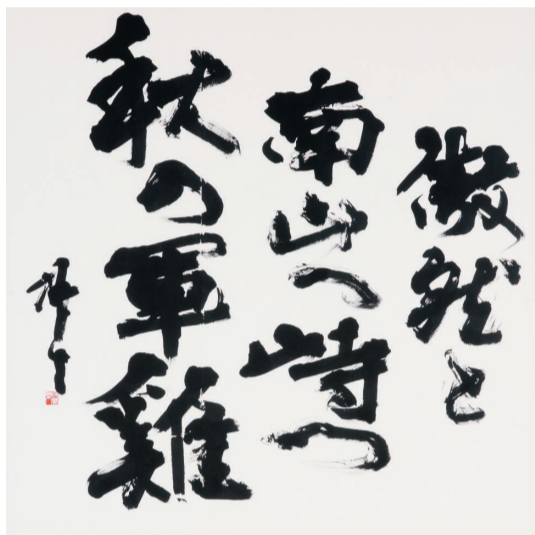 傲然と
南山へ峙つ
秋の軍雞